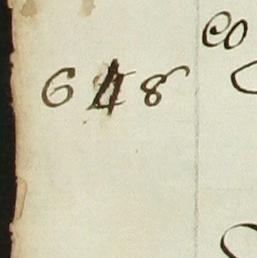 648
co